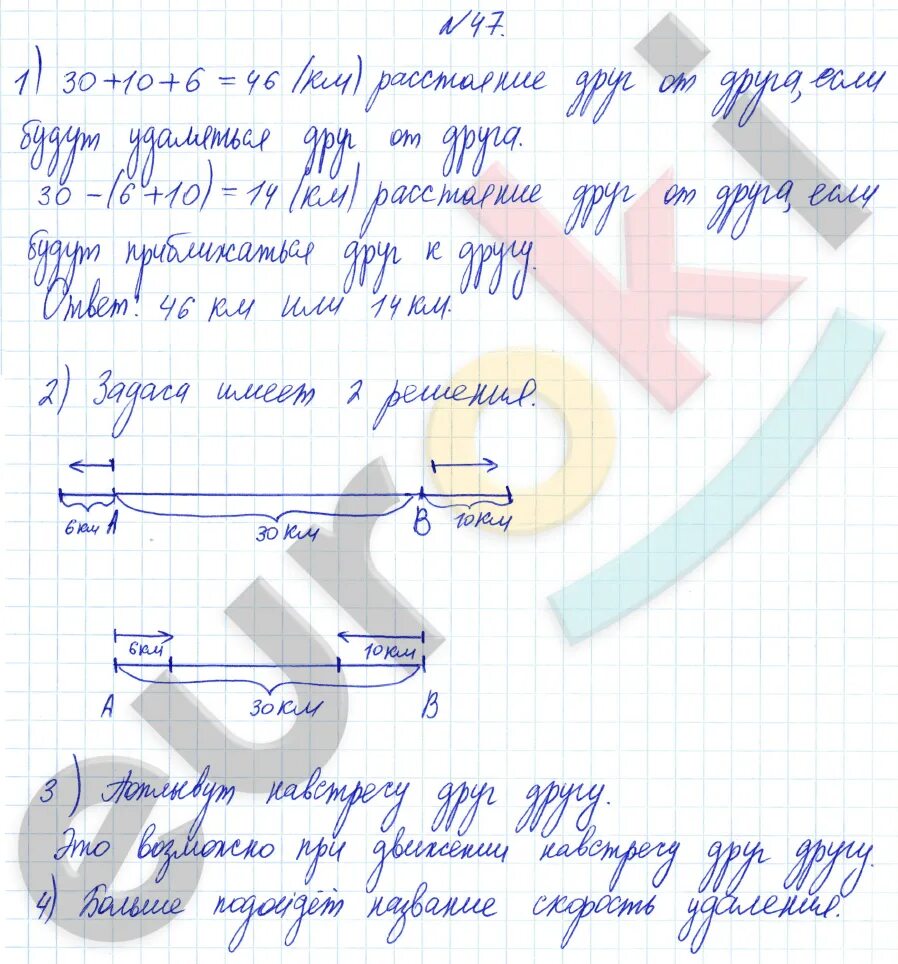 №47.
1) 30+10+6 = 46 (км) расстояние друг от друга, если
будут удаляться друг от друга.
30 - (6+10) = 14 (км) расстояние друг от друга, если
будут приближаться друг к другу.
Ответ: 46 км или 14 км.
2) Задаса имеет 2 решения.
6км A 30км B 10км
6км 10км
A 30км B
3) Поплывут навстресу друг другу.
Это возможно при движении навстресу друг другу.
4) Больше подойдёт название скорость удаления.
euroki